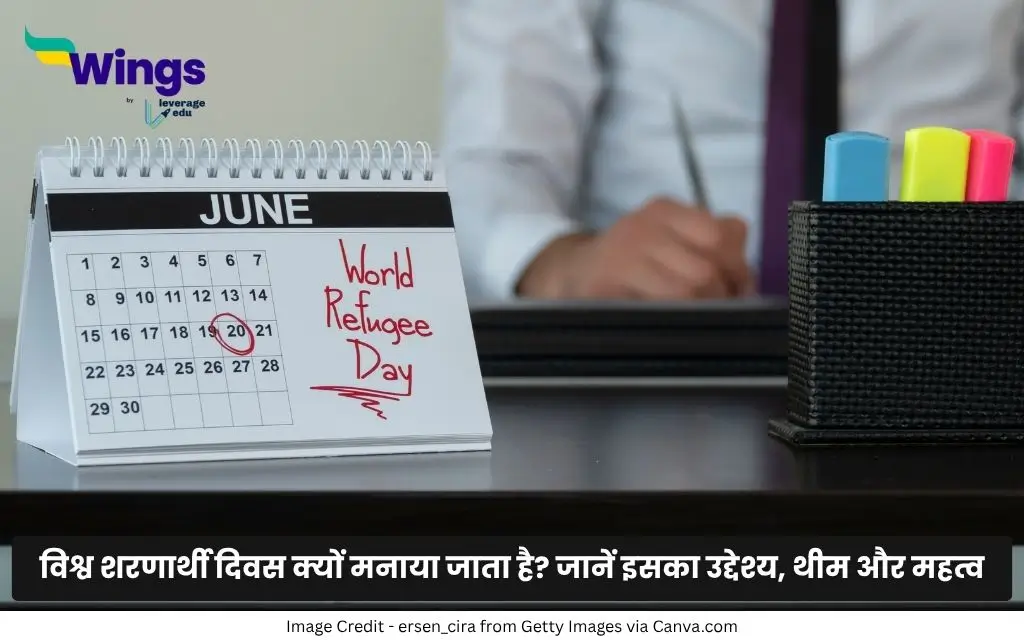 Wings
by leverage
edu
JUNE
1 2 3 4 5 6 7
8 9 10 11 12 13 14
15 16 17 18 19 20 21
22 23 24 25 26 27 28
29 30
World
Refugee
Day
विश्व शरणार्थी दिवस क्यों मनाया जाता है? जानें इसका उद्देश्य, थीम और महत्व
Image Credit - ersen_cira from Getty Images via Canva.com